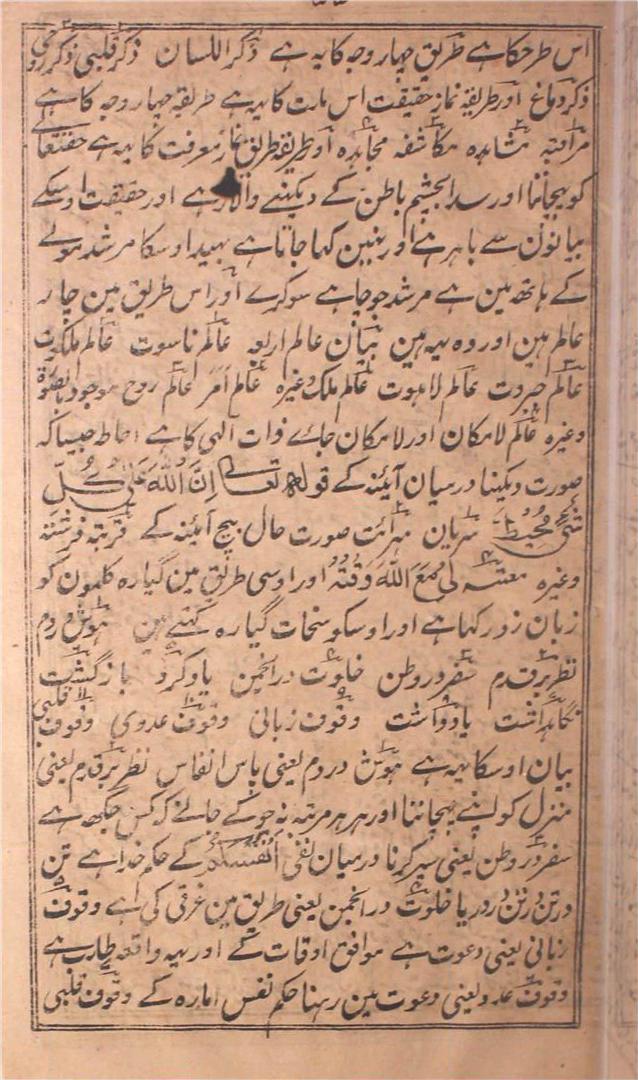 اس طرحکا ہے طریق چہار وجہ کا یہ ہے ذکر اللسان ذکر قلبی ذکر روحی
ذکر دماغ اور طریقۂ نماز حقیقت اس بات کا یہ ہے طریقہ چہار وجہ کا ہے
مراقبہ مشاہدہ مکاشفہ مجاہدہ اور طریقہ طریق نماز معرفت کا یہ ہے حقتعالے
کو پہچاننا اور سدا بچشم باطن کے دیکھنے والا رہے اور حقیقت اوسکے
بیانون سے باہر ہے اور نہین کہا جاتا ہے بہید اوسکا مرشد مولے
کے ہاتھ مین ہے مرشد جو چاہے سو کرے اور اس طریق مین چار
عالم ہین اور وہ یہہ ہین بیان عالم اربعہ عالم ناسوت عالم ملکوت
عالم جبروت عالم لاہوت عالم ملک وغیرہ عالم امر عالم روح موجود بالصلوۃ
وغیرہ عالم لامکان اور لامکان جائے ذات الہی کا ہے احاطہ جیسا کہ
صورت دیکہنا درمیان آئینہ کے قولہ تعالے اِنَّ اللّٰهَ عَلٰی کُلِّ
شَیْءٍ مُحِیْط سریان مرأت صورت حال بیچ آئینہ کے قربتہ فرشتہ
وغیرہ معیتہ لِی مَعَ اللّٰهَ وَقْتٌهُ اور اوسی طریق مین گیارہ کلمون کو
زبان زور کہا ہے اور اوسکو سنحات گیارہ کہتے ہین ہوش در دم
نظر بر قدم سفر در وطن خلوت در انجمن یاد کرد باز گشت
نگاہداشت یادداشت وقوف زبانی وقوف عددی وقوف قلبی
بیان اوسکا یہہ ہے ہوش در دم یعنی پاس انفاس نظر بر قدم یعنی
منزل کو اپنے پہچاننا اور ہر ہر مرتبہ پر جو کے جانے کہ کس جگہہ ہے
سفر در وطن یعنی سیر کرنا درمیان نفی اَنْفُسَکُمْ کے حکم خدا ہے تن
در تن در دریا خلوت در انجمن یعنی طریق مین غرقی کی ہے وقوف
زبانی یعنی دعوت ہے موافق اوقات کے اور یہہ واقعہ طارب ہے
وقوف عدد یعنی دعوت مین رہنا حکم نفس امارہ کے وقوف قلبی